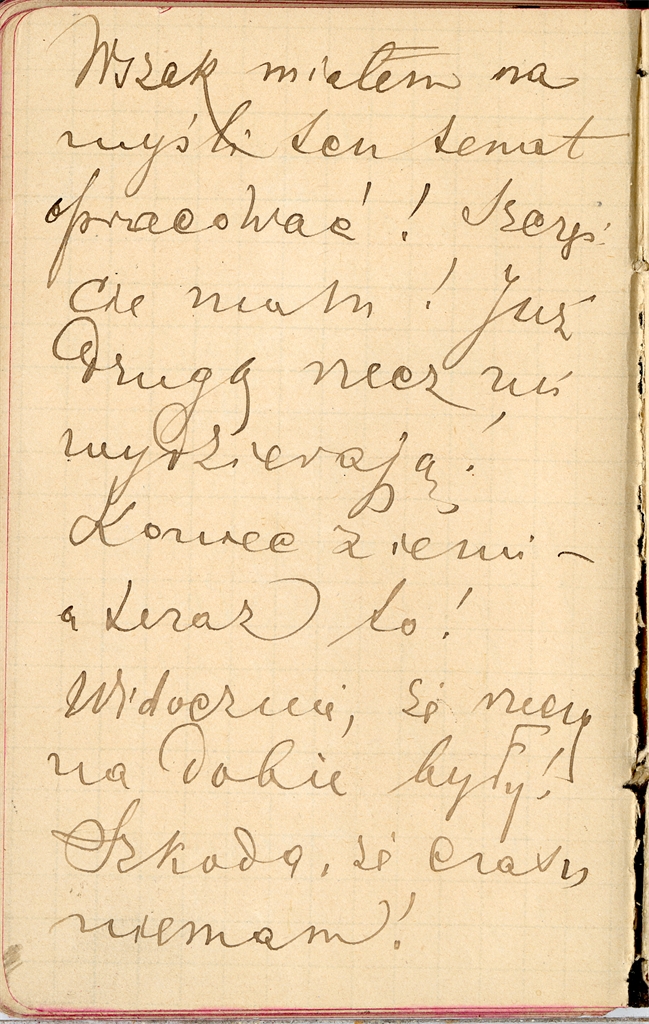 Wszak miałem na
myśli ten temat
opracować! Szczęś-
cie mam! Już
drugą rzecz mi
wydzierają!
Koniec ziemi –
a teraz to!
Widocznie, że rzeczy
na dobie były!
Szkoda, że czasu
niemam!